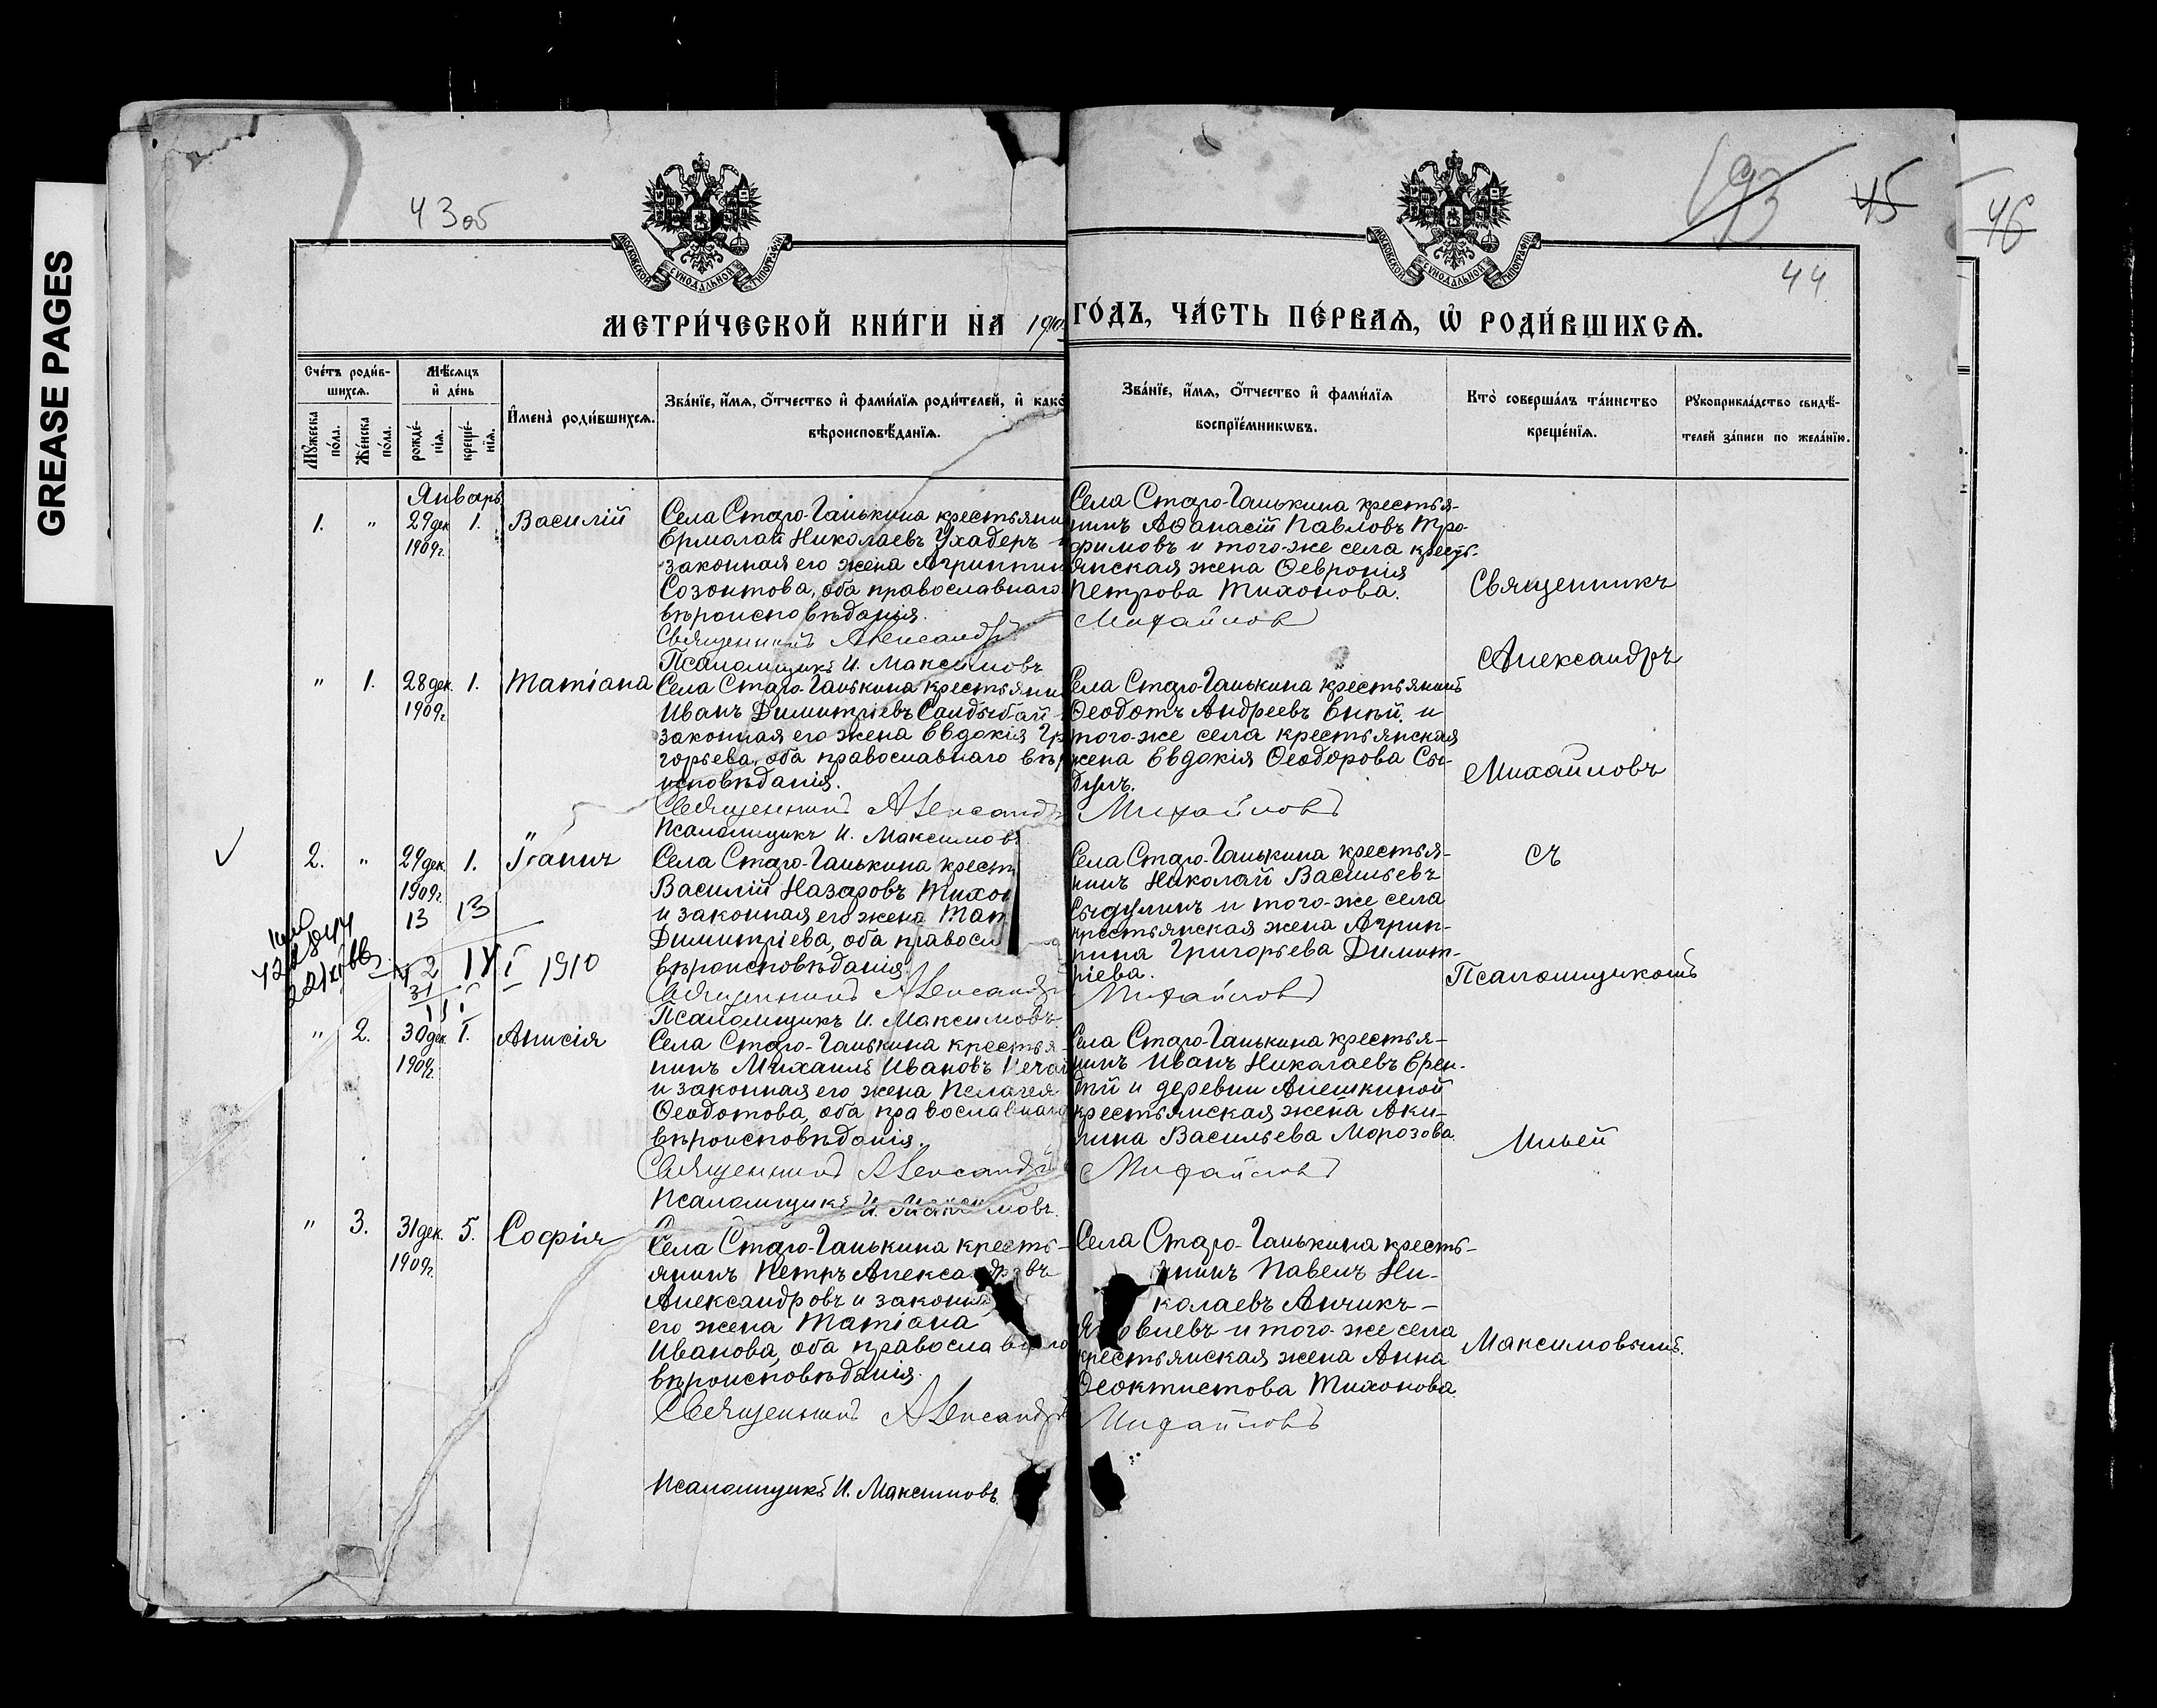 GREASE PAGES
43 об
193
45
46
44
МОСКОВСКОЙ СѴНОДАЛЬНОЙ ТИПОГРАФІИ
МОСКОВСКОЙ СѴНОДАЛЬНОЙ ТИПОГРАФІИ
МЕТРИ́ЧЕСКОЙ КНИ́ГИ НА 1910
ГО́ДЪ, ЧА́СТЬ ПЕ́РВАѦ, Ѡ РОДИ́ВШИХСѦ.
Сче́тъ роди́в-
шихсѧ.
Мѣсѧцъ
и де́нь
Мꙋжеска по́ла.
Же́нска по́ла.
рожде́-нїѧ.
креще́-нїѧ.
Имена̀ роди́вшихсѧ.
Зва́нїе, и́мѧ, ѻ́тчество и фами́лїѧ роди́телей, и како
вѣроисповѣ́данїѧ.
Зва́нїе, и́мѧ, ѻ́тчество и фами́лїѧ
воспрїе́мникѡвъ.
Кто̀ соверша́лъ та́инство
креще́нїѧ.
Рꙋкоприкла́дство свидѣ́-
телей за́писи по жела́нїю.
Январь
1. " 29 дек. 1. Василій
1909г.
Села Старо-Ганькина крестьянин
Ермолай Николаевъ Ухадеръ
законная его жена Агриппин
Созонтова, оба православнаго
вѣроисповѣданія.
Священникъ Александръ
Псаломщикъ И. Максимовъ
Села Старо-Ганькина крестья-
нинъ Аѳанасій Павловъ Тро-
фимовъ и того-же села кресть-
янская жена Ѳевронія
Петрова Тихонова.
Михайлов
" 1. 28 дек. 1. Татіана
1909г.
Села Старо-Ганькина крестьянин
Иванъ Димитріевъ Сандыбай
законная его жена Евдокія Гр
горьева, оба православнаго вѣр
исповѣданія.
Священникъ Александръ
Псаломщикъ И. Максимовъ
Села Старо-Ганькина крестьянинъ
Ѳеодотъ Андреевъ и
того-же села крестьянская
жена Евдокія Ѳеодорова Сы-
Михайловъ
2. " 29 дек. 1. Іоаннъ
1909г.
13 13
1910
Села Старо-Ганькина крест
Василій Назаровъ Тихон
и законная его жена Тат
Димитріева, оба правосл
вѣроисповѣданія.
Священникъ Александр
Псаломщикъ И. Максимовъ.
Села Старо-Ганькина крестья-
нинъ Николай Васильевъ
Сындулинъ и того-же села
крестьянская жена Агрип-
пина Григорьева Димит-
ріева.
Михайловъ
" 2. 30 дек. 1. Анисія
1909г.
Села Старо-Ганькина крестья-
нинъ Михаилъ Ивановъ Нечай
и законная его жена Пелагея
Ѳеодотова, оба православнаго
вѣроисповѣданія.
Священникъ Александръ
Псаломщикъ И. Максимовъ.
Села Старо-Ганькина крестья-
нинъ Иванъ Николаевъ Ерен-
и деревни Алешкиной
крестьянская жена Аки-
лина Васильева Морозова.
Михайловъ
" 3. 31 дек. 5. Софія
1909г.
Села Старо-Ганькина кресть-
янинъ Петръ Александровъ
Александровъ и законная
его жена Татіана
Иванова, оба православнаго
вѣроисповѣданія.
Священникъ Александръ
Псаломщикъ И. Максимовъ.
Села Старо-Ганькина кресть-
янинъ Павелъ Ни-
колаевъ Анчикъ-
Яковлевъ и того-же села
крестьянская жена Анна
Ѳеоктистова Тихонова.
Михайловъ
Священникъ
Александръ
Михайловъ
съ
Псаломщикомъ
Ильей
Максимовымъ.